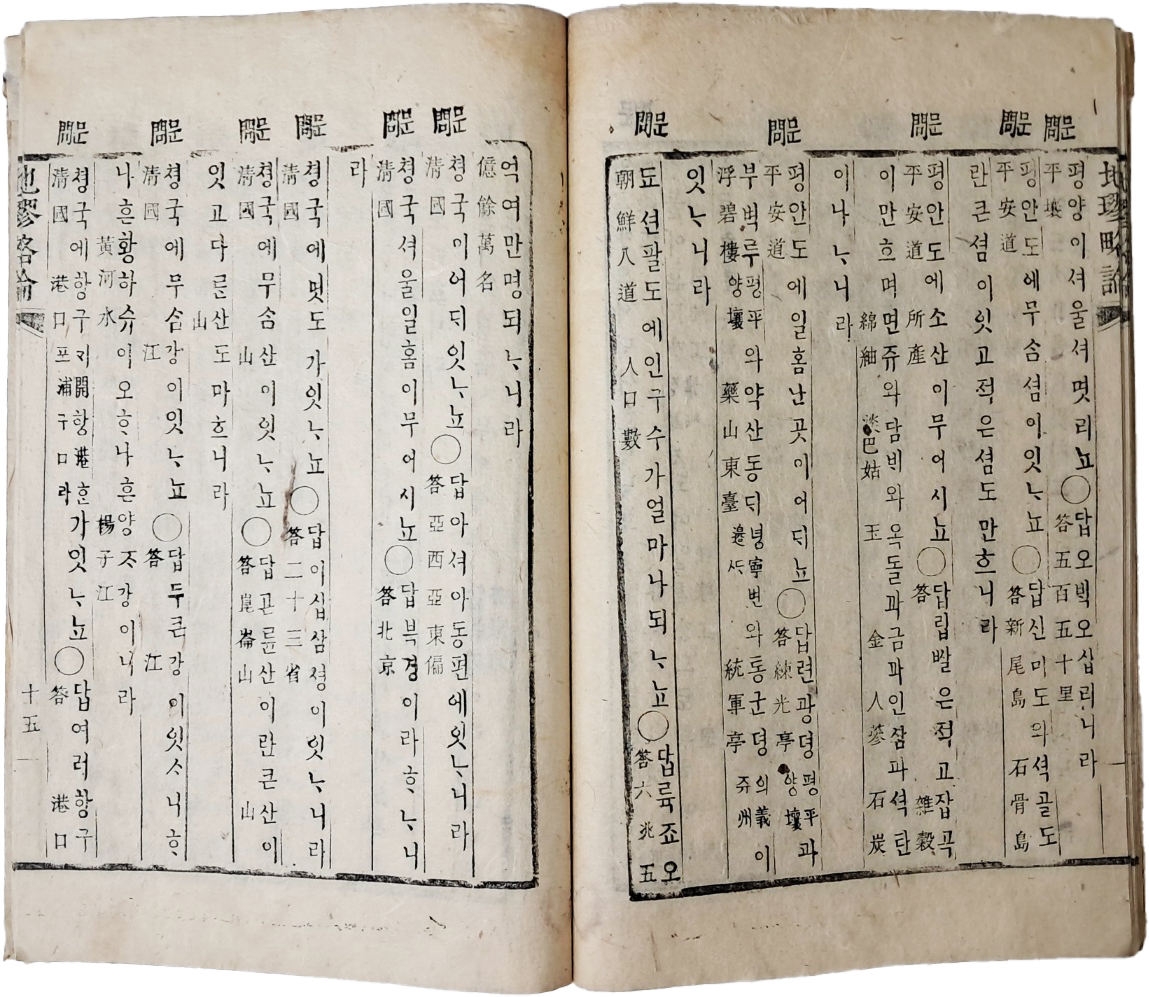 地璆略論
問문
평양이셔울셔몃리뇨○답오ᄇᆡᆨ오십리니라
平壤 答五百五十里
問문
평안도에무ᄉᆞᆷ셤이잇ᄂᆞ뇨○답신미도의셕골도
平安道 答新尾島 石骨島
란큰셤이잇고젹은셤도만흐니라
問문
평안도에소산이무어시뇨○답립ᄡᆞᆯ은젹고잡곡
平安道 所產 答 雜穀
이만흐며면쥬와담ᄇᆡ와옥돌과금과인삼과셕탄
綿紬 淡巴姑 玉 金 人蔘 石炭
이나ᄂᆞ니라
問문
평안도에일홈난곳이어ᄃᆡ뇨○답련광뎡평양과
平安道 答練光亭 平壤
부벽루평양와약산동ᄃᆡ녕변와통군뎡의쥬이
浮碧樓 平壤 藥山東臺 寧邊 統軍亭 義州
잇ᄂᆞ니라
問문
됴션팔도에인구수가얼마나되ᄂᆞ뇨○답륙죠오
朝鮮八道 人口數 答六兆五
억여만명되ᄂᆞ니라
億餘萬名
問문
쳥국이어ᄃᆡ잇ᄂᆞ뇨○답아셔아동편에잇ᄂᆞ니라
清國 答亞西亞東偏
問문
쳥국셔울일홈이무어시뇨○답북경이라ᄒᆞᄂᆞ니
清國 答北京
라
問문
쳥국에몃도가잇ᄂᆞ뇨○답이십삼셩이잇ᄂᆞ니라
清國 答二十三省
問문
쳥국에무ᄉᆞᆷ산이잇ᄂᆞ뇨○답곤륜산이란큰산이
清國 山 答崑崙山 山
잇고다른산도마흐니라
山
問문
쳥국에무ᄉᆞᆷ강이잇ᄂᆞ뇨○답두큰강이잇ᄉᆞ니ᄒᆞ
清國 江 答 江
나흔황하슈이오ᄒᆞ나흔양ᄌᆞ강이니라
黃河水 楊子江
問문
쳥국에항구ᄀᆡ항ᄒᆞᆫ포구라가잇ᄂᆞ뇨○답여러항구
清國 港口 開港 浦口 答 港口
地璆略論
十五